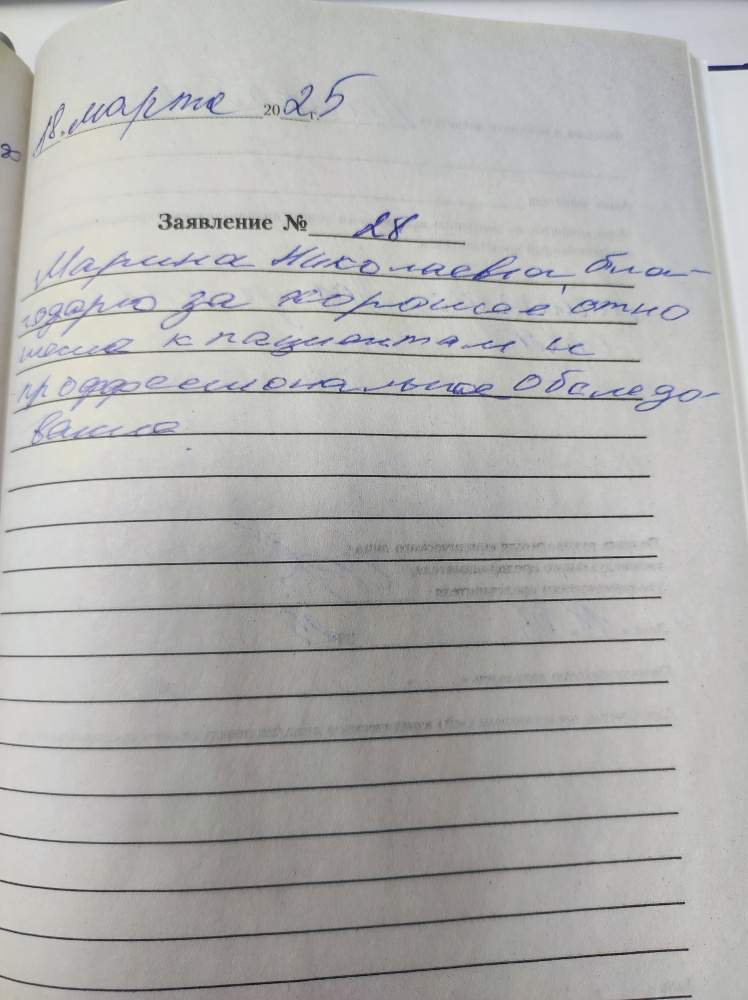 18. марта 2025
г.
Заявление № 28
Марина Николаевна, бла-
годарю за хорошее отно
шение к пациентам и
проффессиональное обследо-
вание